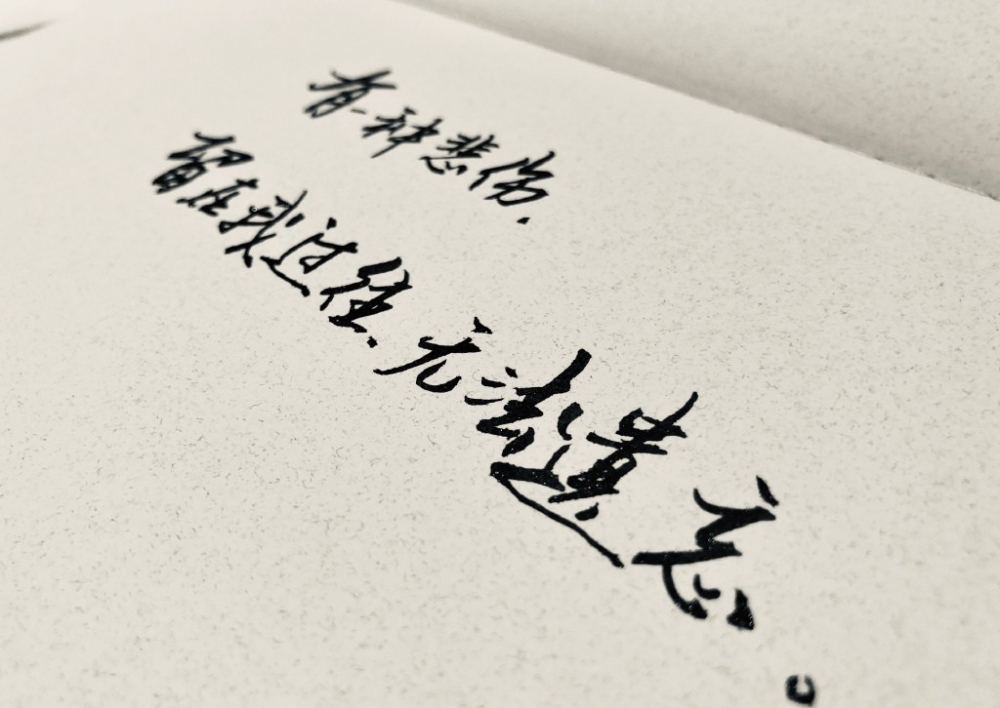 有一种悲伤.
留在我过往.无法遗忘。